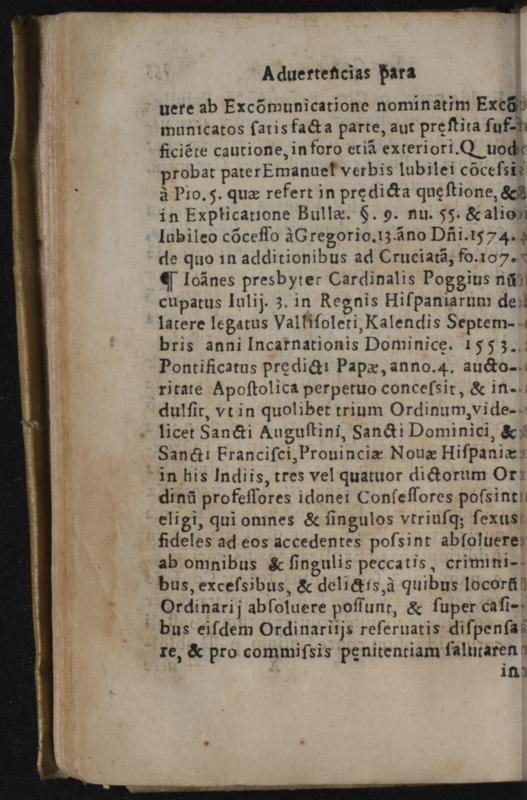 Aduertencias para
uere ab Excõmunicatione nominatim Excõ
municatos satisfacta parte, aut pręstita suf-
ficiẽte cautione, in foro etiã exteriori. Quod
probat pater Emanuel verbis Iubilei cõcessi
à Pio. 5. quæ refert in prędicta quęstione, &
in Explicatione Bullæ. §. 9. nu. 55. & alio
Iubileo cõcesso à Gregorio. 13. ãno Dñi. 1574.
de quo in additionibus ad Cruciatã, fo. 107.
¶ Ioãnes presbyter Cardinalis Poggius nũ
cupatus Iulij. 3. in Regnis Hispaniarum de
latere legatus Vallisoleti, Kalendis Septem-
bris anni Incarnationis Dominicę. 1553.
Pontificatus prędicti Papæ, anno. 4. aucto-
ritate Apostolica perpetuo concessit, & in-
dulsit, vt in quolibet trium Ordinum, vide-
licet Sancti Augustini, Sancti Dominici, &
Sancti Francisci, Prouinciæ Nouæ Hispaniæ
in his Indiis, tres vel quatuor dictorum Or
dinũ professores idonei Confessores possint
eligi, qui omnes & singulos vtriusq; sexus
fideles ad eos accedentes possint absoluere
ab omnibus & singulis peccatis, crimini-
bus, excessibus, & delictis, à quibus locorũ
Ordinarij absoluere possunt, & super casi-
bus eisdem Ordinariijs reseruatis dispensa
re, & pro commissis pęnitentiam salutaren
in